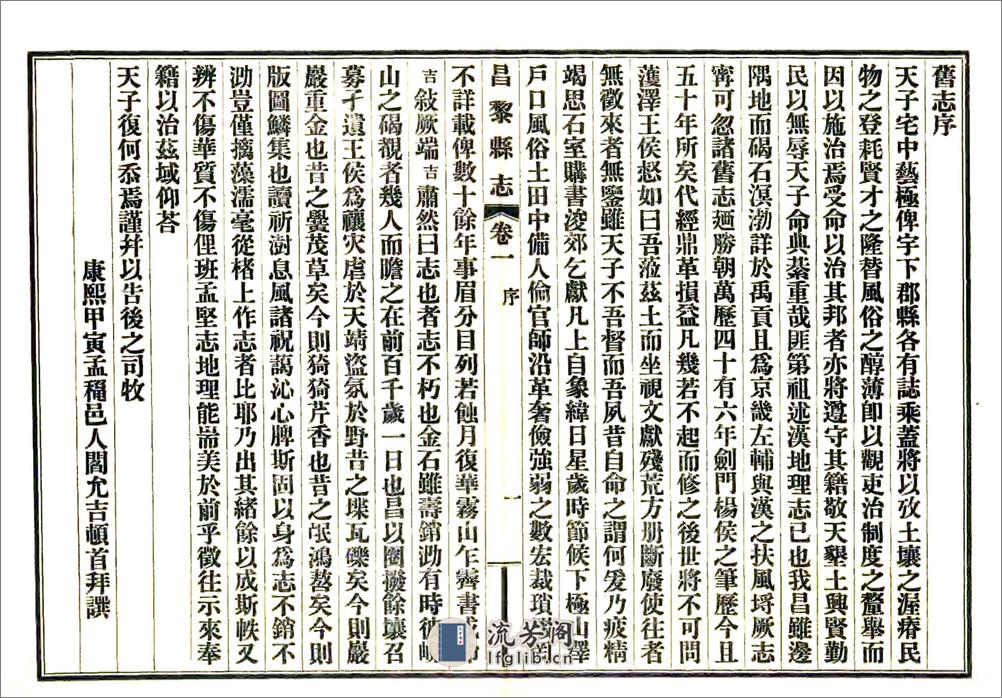 舊志序
天子宅中藝極俾宇下郡縣各有誌乘蓋將以攷土壤之渥瘠民
物之登耗賢才之隆替風俗之醇薄卽以觀吏治制度之釐舉而
因以施治焉受命以治其邦者亦將遵守其籍敬天墾土興賢勤
民以無辱天子命典綦重哉匪第祖述漢地理志已也我昌雖邊
隅地而碣石溟渤詳於禹貢且爲京畿左輔與漢之扶風埒厥志
寗可忽諸舊志廼勝朝萬歷四十有六年劍門楊侯之筆歷今且
五十年所矣代經鼎革損益凡幾若不起而修之後世將不可問
蒦澤王侯惄如曰吾蒞茲土而坐視文獻殘荒方册斷廢使往者
無徵來者無鑒雖天子不吾督而吾夙昔自命之謂何爰乃疲精
竭思石室購書淩郊乞獻凡上自象緯日星歲時節候下極山澤
戶口風俗土田中備人倫官師沿革奢儉強弱之數宏裁瑣
昌黎縣志
卷一
序
一
不詳載俾數十餘年事眉分目列若蝕月復華霧山乍霽書成
吉敍厥端吉肅然曰志也者志不朽也金石雖壽銷泐有時彼峴
山之碣覩者幾人而瞻之在前百千歲一日也昌以圈撥餘壤召
募孑遺王侯爲禳灾虐於天靖盜氛於野昔之堞瓦礫矣今則巖
巖重金也昔之黌茂草矣今則猗猗芹香也昔之氓鴻嗸矣今則
版圖鱗集也讀祈澍息風諸祝謁沁心脾斯固以身爲志不銷不
泐豈僅摛藻濡毫從楮上作志者比耶乃出其緒餘以成斯帙又
辨不傷華質不傷俚班孟堅志地理能耑美於前乎徵往示來奉
籍以治茲域仰荅
天子復何忝焉謹幷以告後之司牧
康熙甲寅孟穐邑人閻允吉頓首拜譔
流芳阁
lfglib.cn